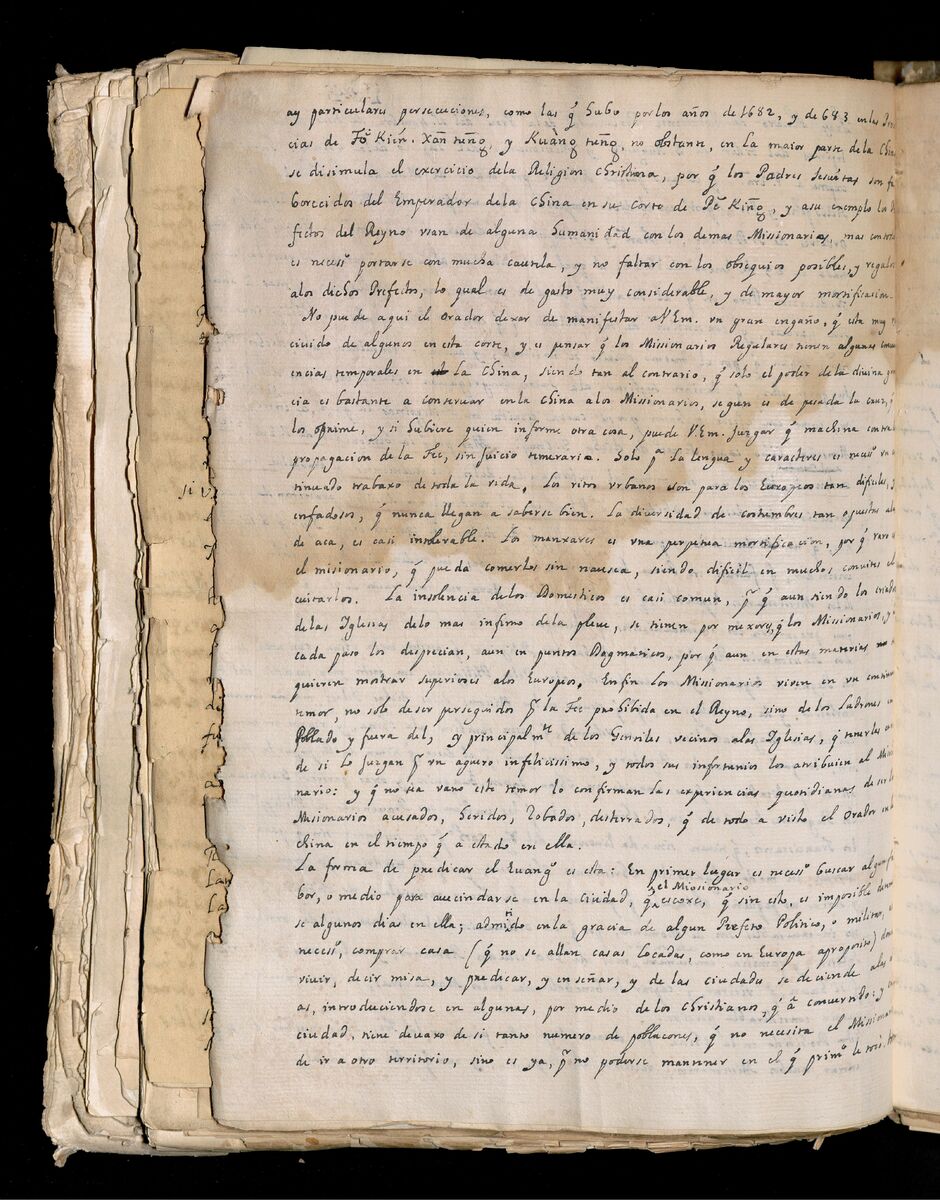 ay particulares persecuciones, como las q̃ hubo por los años de 1682, y de 683 en las
cias de Fŏ Kién. Xān tūng, y Kuàng tūng, no obstante, en la maior parte de la Chi
se disimula el exercicio dela Religion christiana, por q̃ los Padres Jesuitas son fa
borecidos del Emperador de la China en su corte de Pĕ Kīng, y a su exemplo los
fectos del Reyno vsan de alguna humanidad con los demas Missionarios, mas con
es necesº portarse con mucha cautela, y no faltar con los obsequios posibles, y regalos
alos dichos Prefectos, lo qual es de gasto muy considerable, y de mayor mortificacion.
No puede aqui el orador dexar de manifestar a V.Em. vn gran engaño, q̃ esta muy
civido de algunos en esta corte, y es pensar q̃ los Missionarios Regulares tienen algunas
encias temporales en la China, siendo tan al contrario, q̃ solo el poder de la divina gra
cia es bastante a conservar en la China a los Missionarios, segun es de pesada la cruz, q̃
los oprime, y si hubiere quien informe otra cosa, puede V.Em. juzgar q̃ machina contra
propagacion de la Fee, sin juicio temerario. Solo pª la lengua y caracteres es necesº vn
tinuado trabaxo de toda la vida, Los ritos vrbanos son para los Europeos tan dificiles, y
enfadosos, q̃ nunca llegan a saberse bien. La diversidad de costumbres tan opuestas alas
de aca, es casi intolerable. Los manxares es vna perpetua mortificacion, por q̃ raro
el misionario, q̃ pueda comerlos sin nausea, siendo dificil en muchos convites el
cuitarlos. La insolencia delos Domesticos es casi comun, p̃ q̃ aun siendo los criados
delas Iglesias delo mas infimo dela pleve, se tienen por mexores, q̃ los Missionarios, y
cada paso los desprecian, aun en puntos Dogmaticos, por q̃ aun en estas materias
quieren mostrar superiores alos Europeos. En fin los Missionarios viven en vn continuo
temor, no solo de ser perseguidos p̃ la Fee prohibida en el Reyno, sino de los Ladrones en
Poblado y fuera del, y principalmte de los Gentiles vecinos alas Iglesias, q̃ tenerles
de si lo juzgan p̃ vn aguero infelicissimo, y todos sus infortunios los atribuien al Missio
nario: y q̃ no sea vano este temor lo confirman las experiencias quotidianas de ser los
Missionarios acusados, heridos, robados, desterrados, q̃ de todo a visto el orador en la
china en el tiempo q̃ a estado en ella.
La forma de predicar el Euangº es esta: En primer lugar es necesº buscar algun fa
bor, o medio para auecindarse en la ciudad, q̃ el Missionario escoxe, q̃ sin esto, es imposible
se algunos dias en ella; admitido en la gracia de algun Prefecto Politico, o militar, es
necesº, comprar casa (q̃ no se allan casas locadas, como en Europa aproposito) donde
vivir, decir misa, y predicar, y enseñar, y de las ciudades se deciende alas
as, introduciendose en algunas, por medio de los christianos, q̃ a convertido: y
ciudad, tiene devaxo de si tanto numero de poblaciones, q̃ no necesita el Missionario
de ir a otro territorio, sino es ya, p̃ no poderse mantener en el q̃ primº le toco,